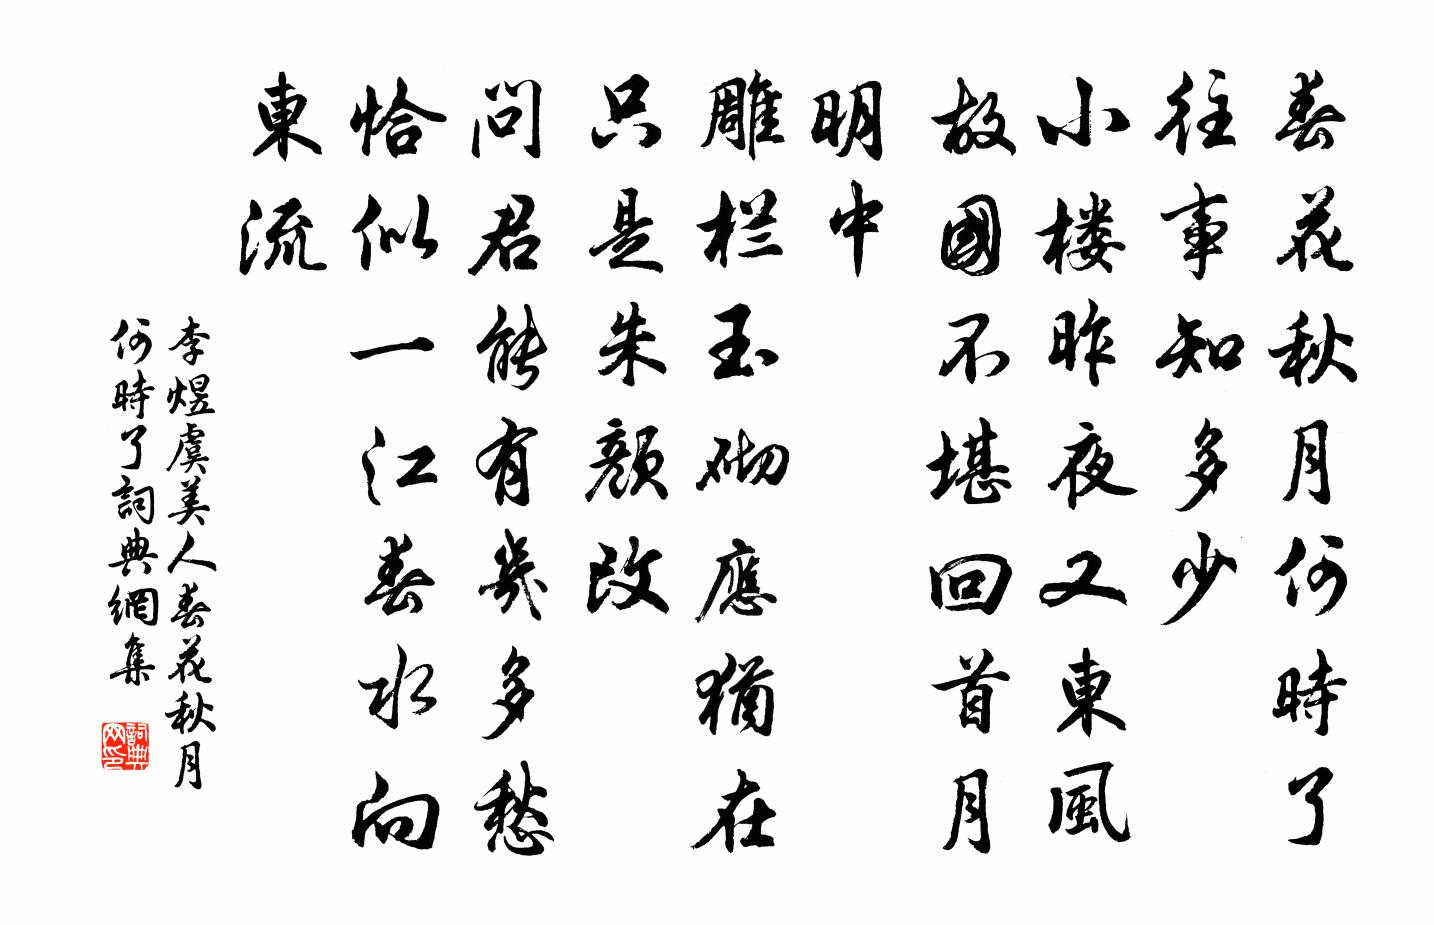 春花秋月何時了
往事知多少
小楼昨夜又東風
故國不堪回首月
明中
雕栏玉砌應猶在
只是朱顏改
问君能有幾多愁
恰似一江春水向
東流
李煜虞美人春花秋月
何時了詞典網集
詞典
网印